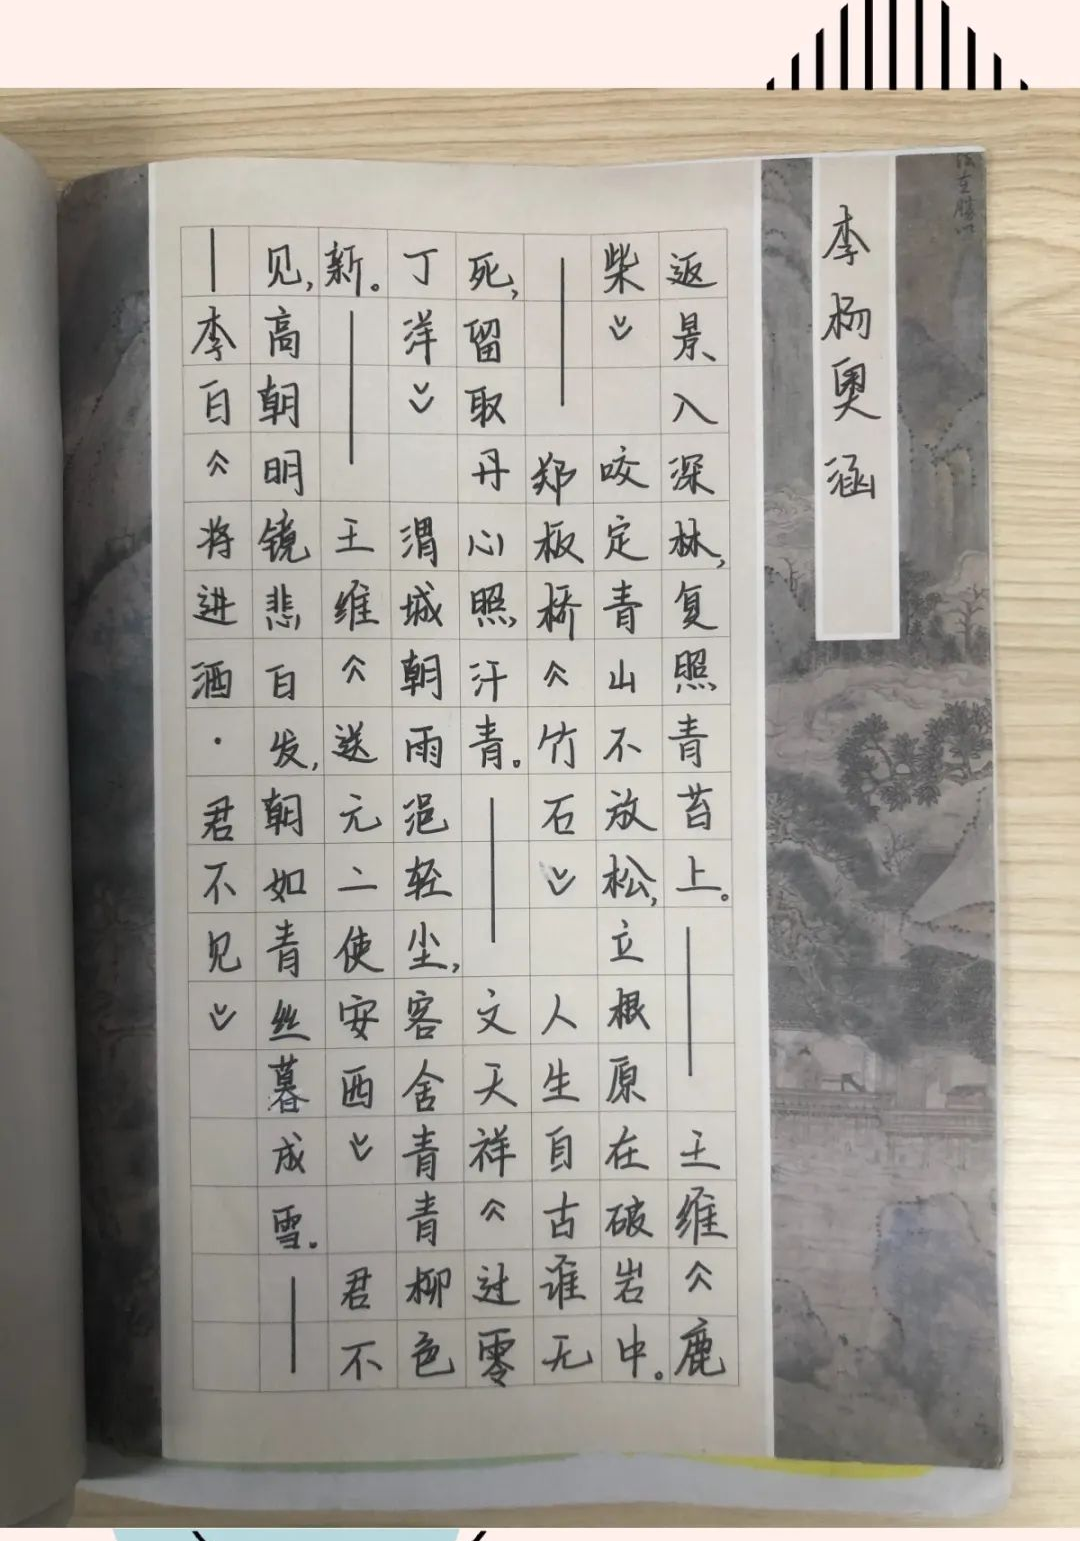 李杨奥涵
返景入深林,复照青苔上。——王维〈鹿
柴〉 咬定青山不放松,立根原在破岩中。
——郑板桥〈竹石〉 人生自古谁无
死,留取丹心照,汗青。——文天祥〈过零
丁洋〉 渭城朝雨浥轻尘,客舍青青柳色
新。——王维〈送元二使安西〉 君不
见,高朝明镜悲白发,朝如青丝暮成雪。—
—李白〈将进酒·君不见〉